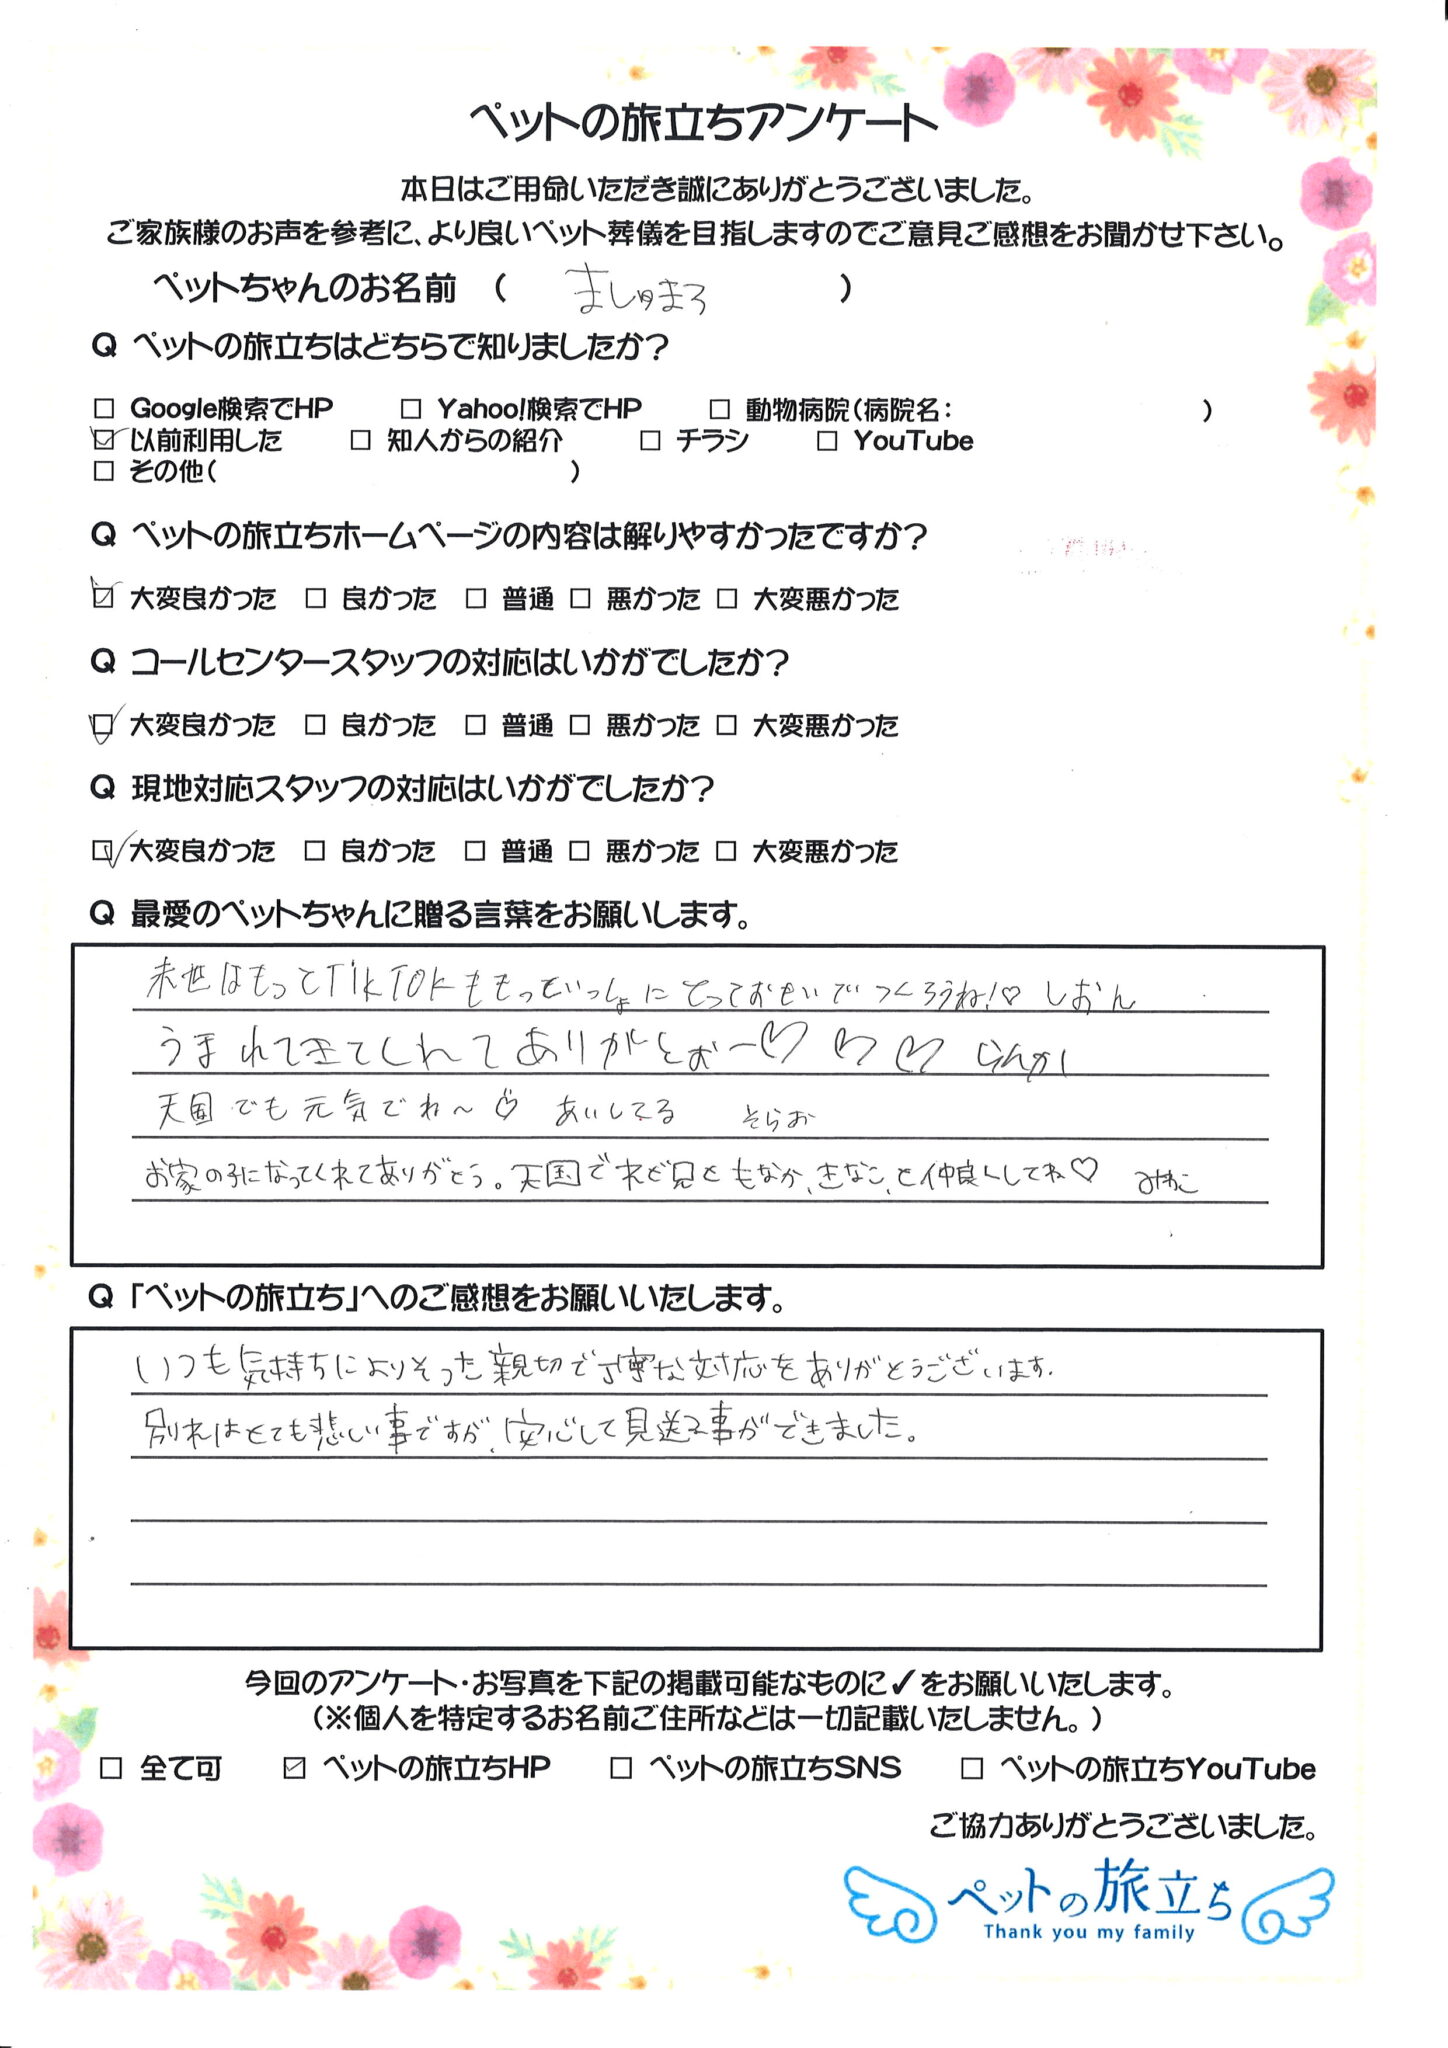 ペットの旅立ちアンケート
本日はご用命いただき誠にありがとうございました。
ご家族様のお声を参考に、より良いペット葬儀を目指しますのでご意見ご感想をお聞かせ下さい。
ペットちゃんのお名前 ( ましゅまろ )
Q ペットの旅立ちはどちらで知りましたか?
□ Google検索でHP □ Yahoo!検索でHP □ 動物病院(病院名: )
☑ 以前利用した □ 知人からの紹介 □ チラシ □ YouTube
□ その他( )
Q ペットの旅立ちホームページの内容は解りやすかったですか?
☑ 大変良かった □ 良かった □ 普通 □ 悪かった □ 大変悪かった
Q コールセンタースタッフの対応はいかがでしたか?
☑ 大変良かった □ 良かった □ 普通 □ 悪かった □ 大変悪かった
Q 現地対応スタッフの対応はいかがでしたか?
☑ 大変良かった □ 良かった □ 普通 □ 悪かった □ 大変悪かった
Q 最愛のペットちゃんに贈る言葉をお願いします。
来世はもっとTikTokももっといっしょにとっておもいでつくろうね!♡ しおん
うまれてきてくれてありがとぉー♡ ♡ ♡ らんか
天国でも元気でね〜♡ あいしてる そらお
お家の子になってくれてありがとう。天国でれど兄ともなか、きなこ、と仲良くしてね♡ みやこ
Q 「ペットの旅立ち」へのご感想をお願いいたします。
いつも気持ちによりそった親切で丁寧な対応をありがとうございます.
別れはとても悲しい事ですが、安心して見送る事ができました。
今回のアンケート・お写真を下記の掲載可能なものに✓をお願いいたします。
(※個人を特定するお名前ご住所などは一切記載いたしません。)
□ 全て可 ☑ ペットの旅立ちHP □ ペットの旅立ちSNS □ ペットの旅立ちYouTube
ご協力ありがとうございました。
ペットの旅立ち
Thank you my family